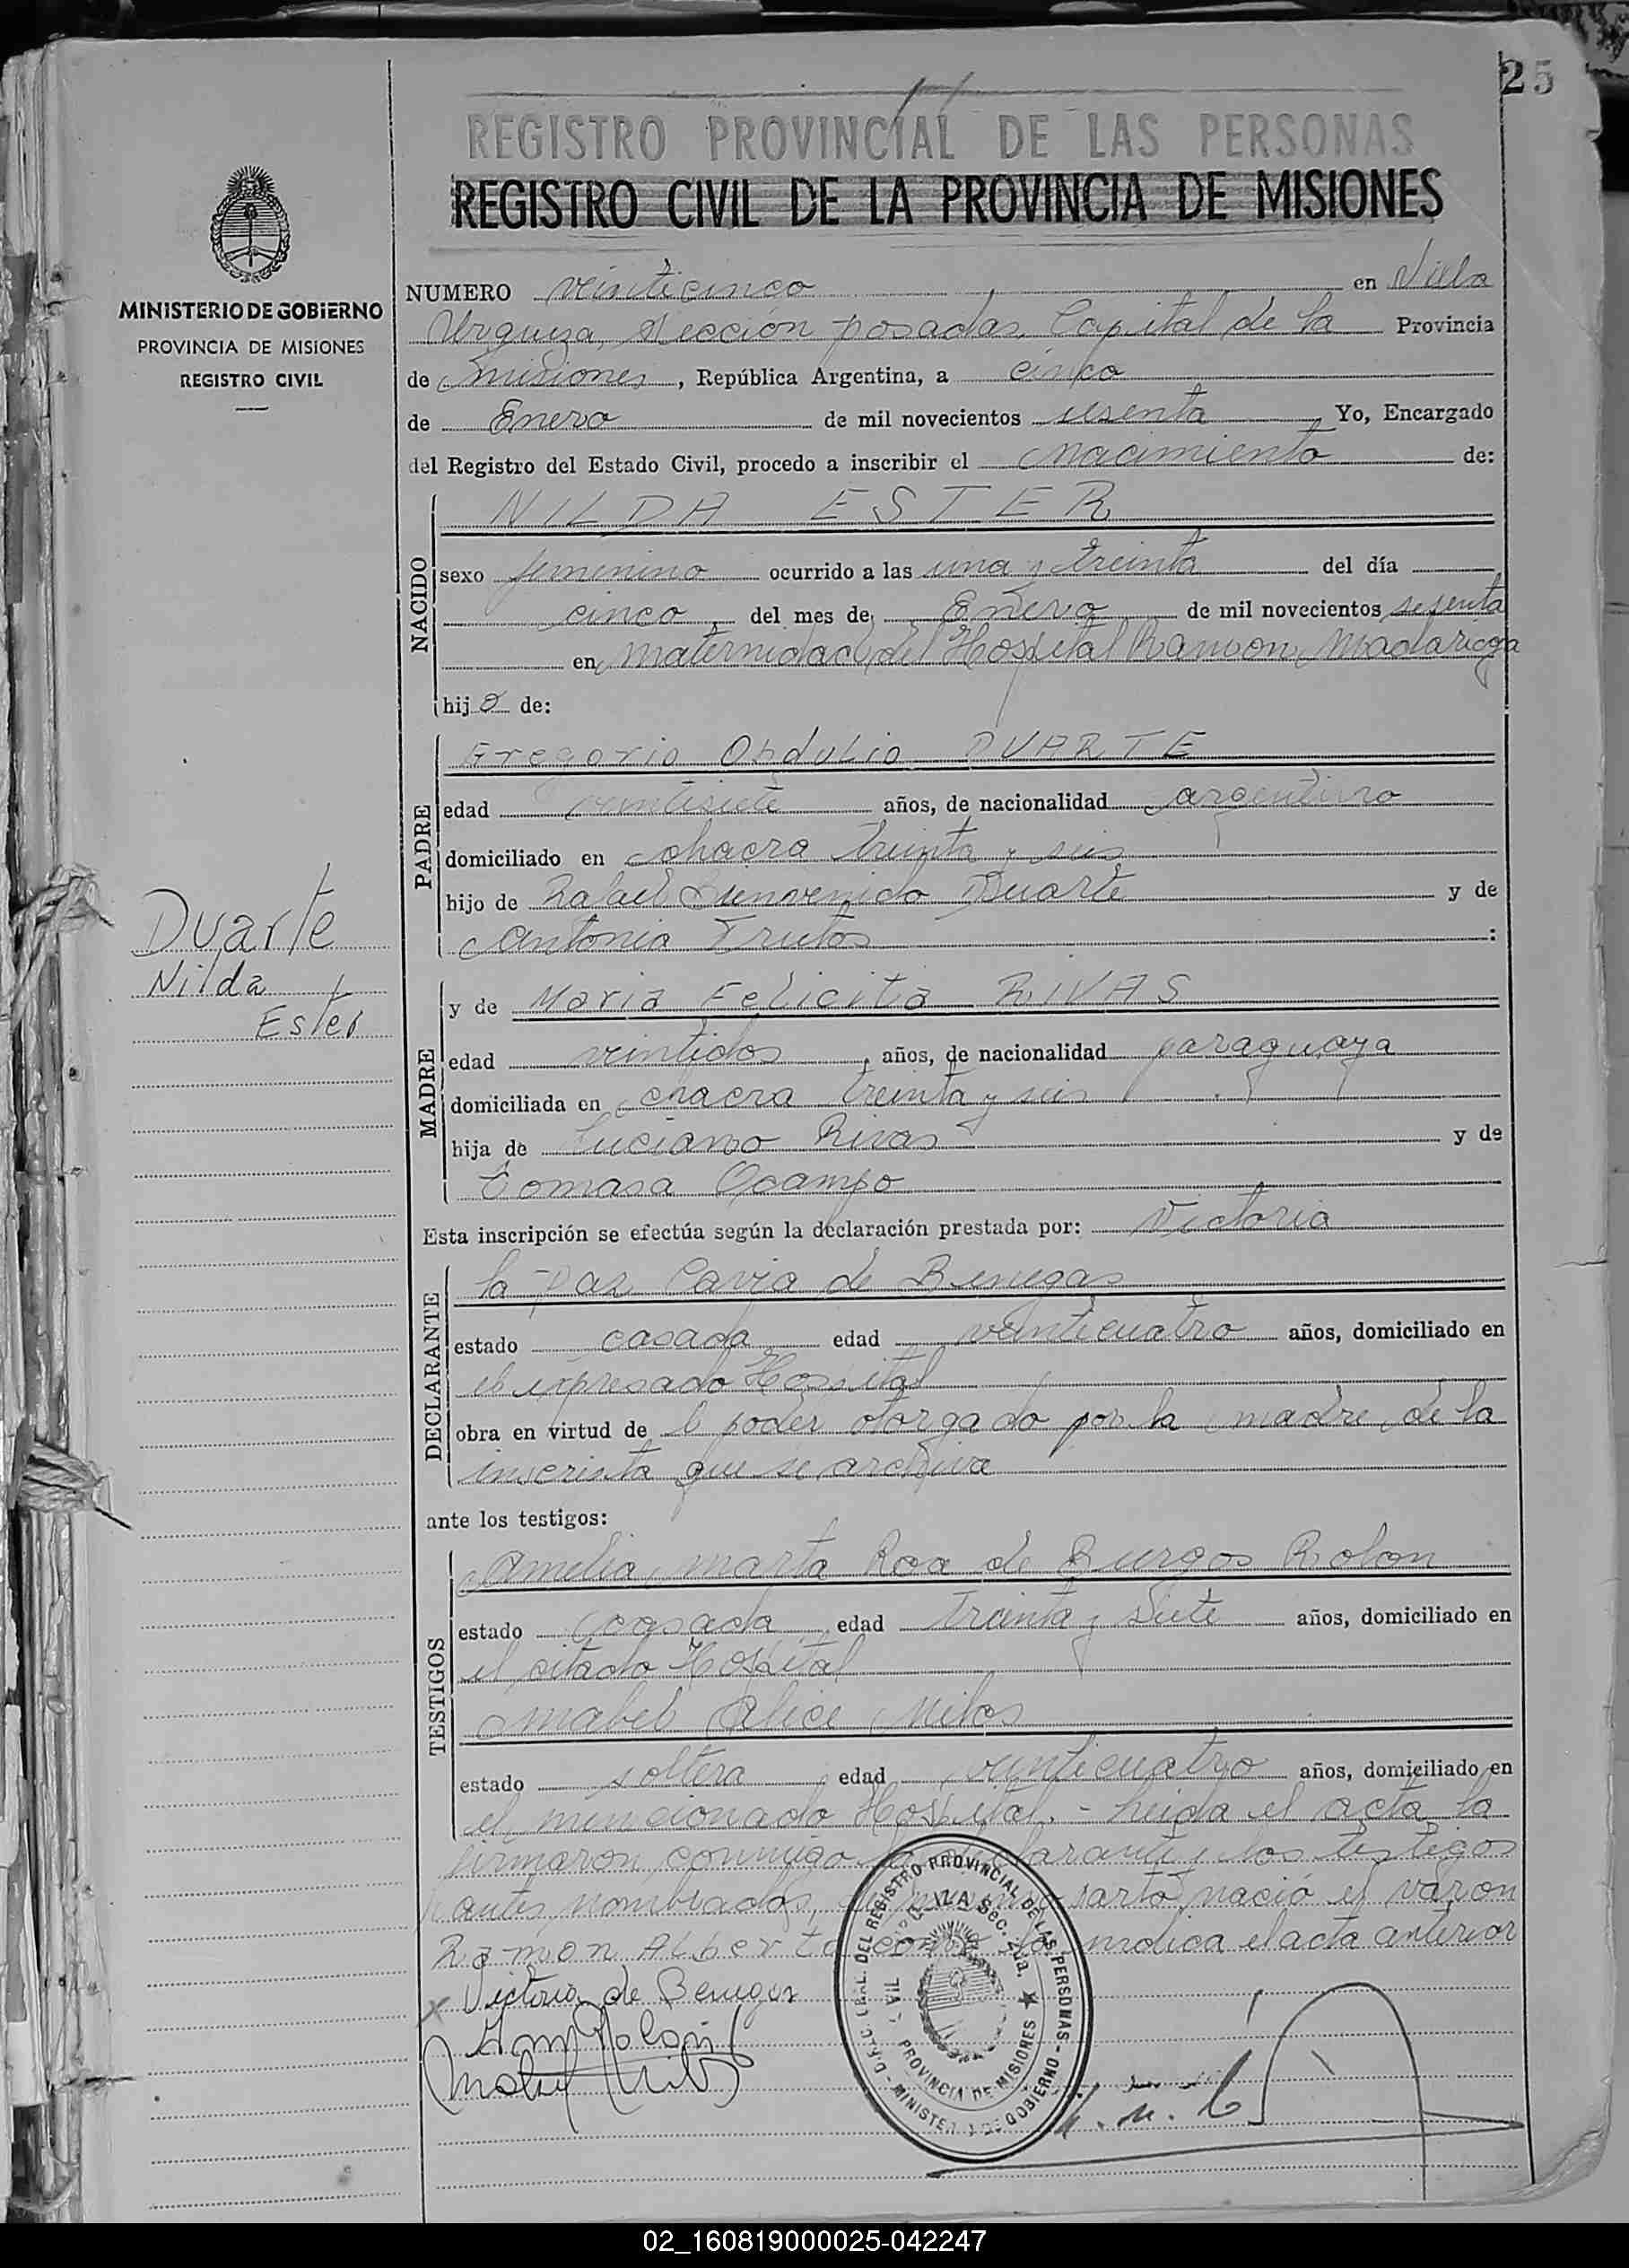 25
REGISTRO PROVINCIAL DE LAS PERSONAS
REGISTRO CIVIL DE LA PROVINCIA DE MISIONES
MINISTERIO DE GOBIERNO
PROVINCIA DE MISIONES
REGISTRO CIVIL
NUMERO veinticinco en Villa
Urquiza, Sección posadas, Capital de la Provincia
de misiones, República Argentina, a cinco
de Enero de mil novecientos sesenta Yo, Encargado
del Registro del Estado Civil, procedo a inscribir el nacimiento de:
NACIDO
NILDA ESTER
sexo femenino ocurrido a las una y treinta del día
cinco, del mes de Enero de mil novecientos sesenta
en maternidad del Hospital Ramon Madariaga
hija de:
PADRE
Gregorio Obdulio DUARTE
edad veintisiete años, de nacionalidad argentino
domiciliado en chacra treinta y seis
hijo de Rafael Bienvenido Duarte y de
Antonia Frutos :
Duarte
Nilda
Ester
MADRE
y de Maria Felicita RIVAS
edad veintidos, años, de nacionalidad paraguaya
domiciliada en chacra treinta y seis
hija de Luciano Rivas y de
Tomasa Ocampo
Esta inscripción se efectúa según la declaración prestada por: Victoria
DECLARANTE
la Paz Cavia de Benegas
estado casada edad veinticuatro años, domiciliado en
el expresado Hospital
obra en virtud de el poder otorgado por la madre de la
inscripta que se archiva
ante los testigos:
TESTIGOS
Amelia Marta Roa de Burgos Rolon
estado casada edad treinta y siete años, domiciliado en
el citado Hospital
Mabel Alice Milos
estado soltera edad veinticuatro años, domiciliado en
el mencionado Hospital. - Leida el acta la
firmaron conmigo los testigos
antes nombrados, nació el varon
Ramon Alberto como lo indica el acta anterior
Victoria de Benegas
DEL REGISTRO PROVINCIAL DE LAS PERSONAS - MINISTERIO DE GOBIERNO
Sec. 2da.
PROVINCIA DE MISIONES
02_160819000025-042247